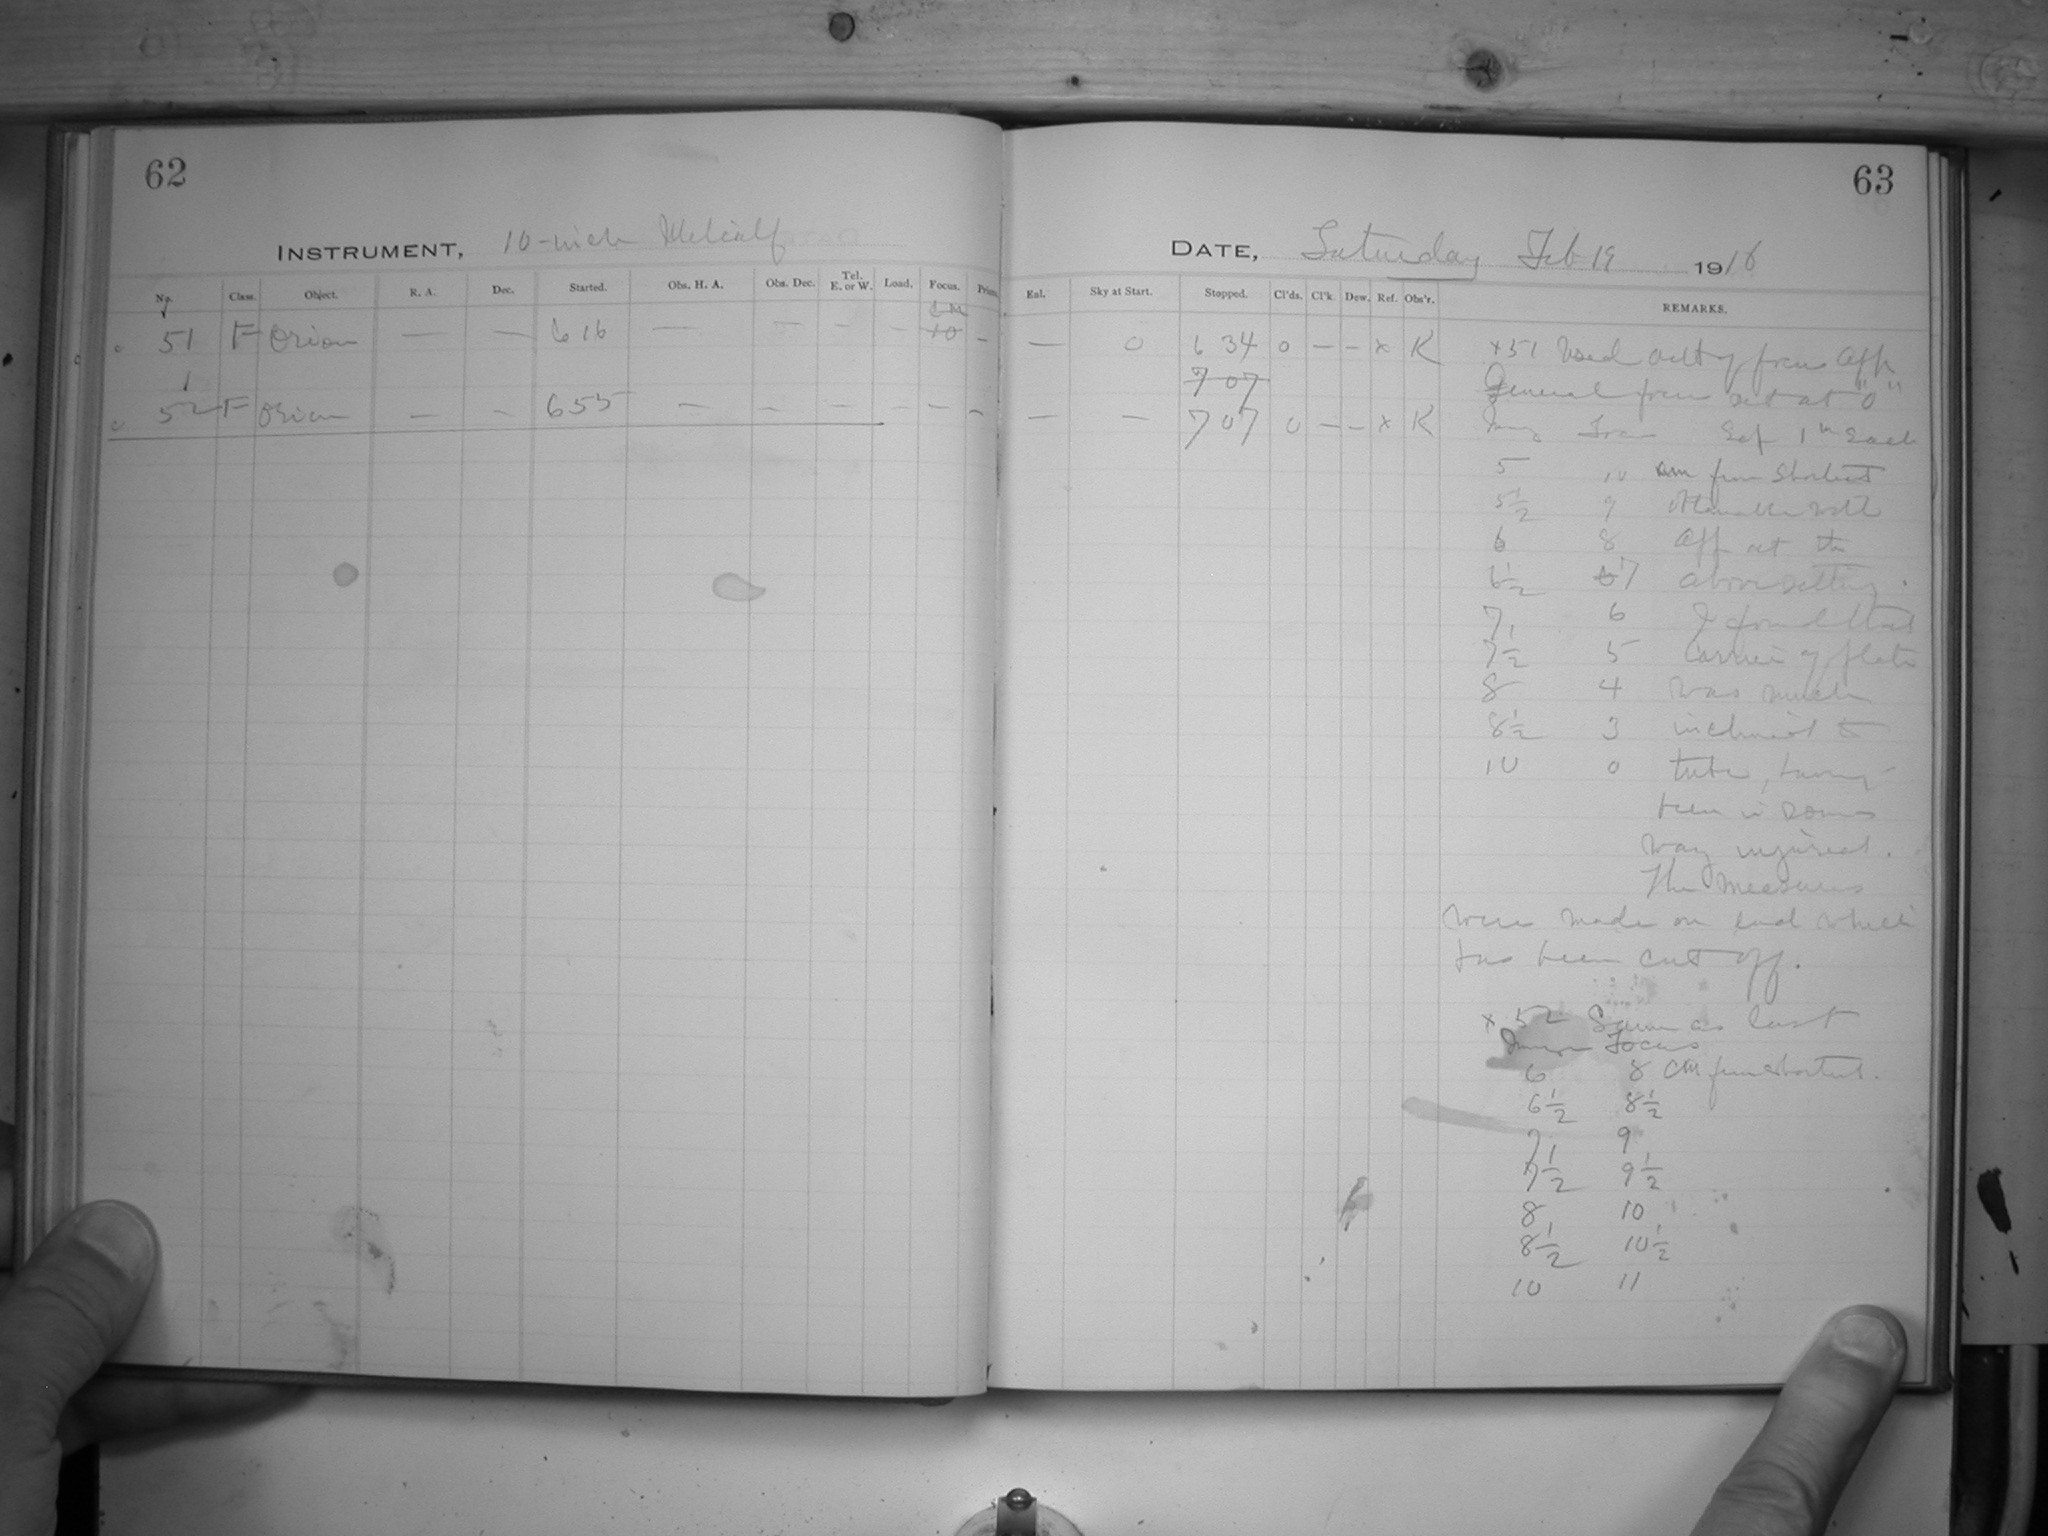 62
INSTRUMENT, 10-inch Metcalf
No. Class. Object. R. A. Dec. Started. Obs. H. A. Obs. Dec. Tel. E. or W. Load. Focus.
51 F Orion — — 6 16 — — — — 10 —
52 F Orion — — 6 55 — — — — — —
63
DATE, Saturday Feb 19 1916
Sky at Start. Stopped. Cl'ds. Cl'k. Dew. Ref. Obs'r. REMARKS.
— 0 6 34 0 — — x K x51 Used out of focus app
7 07 General focus set at "0"
— — 7 07 0 — — x K Exp 1m Each
5 10 cm from Shortest
5½ 9
6 8 app at the
6½ 7 above setting.
7 6 I found that
7½ 5 Carrier of plate
8 4 was much
8½ 3 inclined to
10 0 tube, having
been in some
way injured.
The measures
were made on end which
has been cut off.
x 52 Same as last
Image Focus
6 8 CM from shortest.
6½ 8½
7 9
7½ 9½
8 10
8½ 10½
10 11